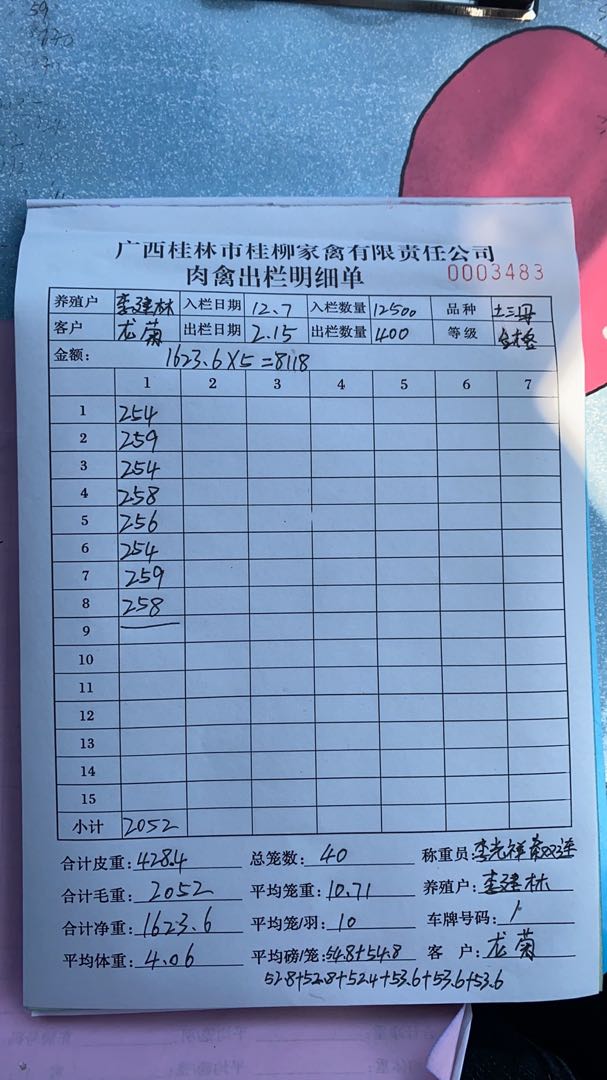 广西桂林市桂柳家禽有限责任公司
肉禽出栏明细单 0003483
养殖户 李建林 入栏日期 12.7 入栏数量 12500 品种 土三母
客户 龙菊 出栏日期 2.15 出栏数量 400 等级 合格
金额: 1623.6×5=8118
1 2 3 4 5 6 7
1 254
2 259
3 254
4 258
5 256
6 254
7 259
8 258
9
10
11
12
13
14
15
小计 2052
合计皮重: 428.4 总笼数: 40 称重员: 李光祥
合计毛重: 2052 平均笼重: 10.71 养殖户: 李建林
合计净重: 1623.6 平均笼/羽: 10 车牌号码: 1
平均体重: 4.06 平均磅/笼: 54.8+54.8 客户: 龙菊
52.8+52.8+52.4+53.6+53.6+53.6